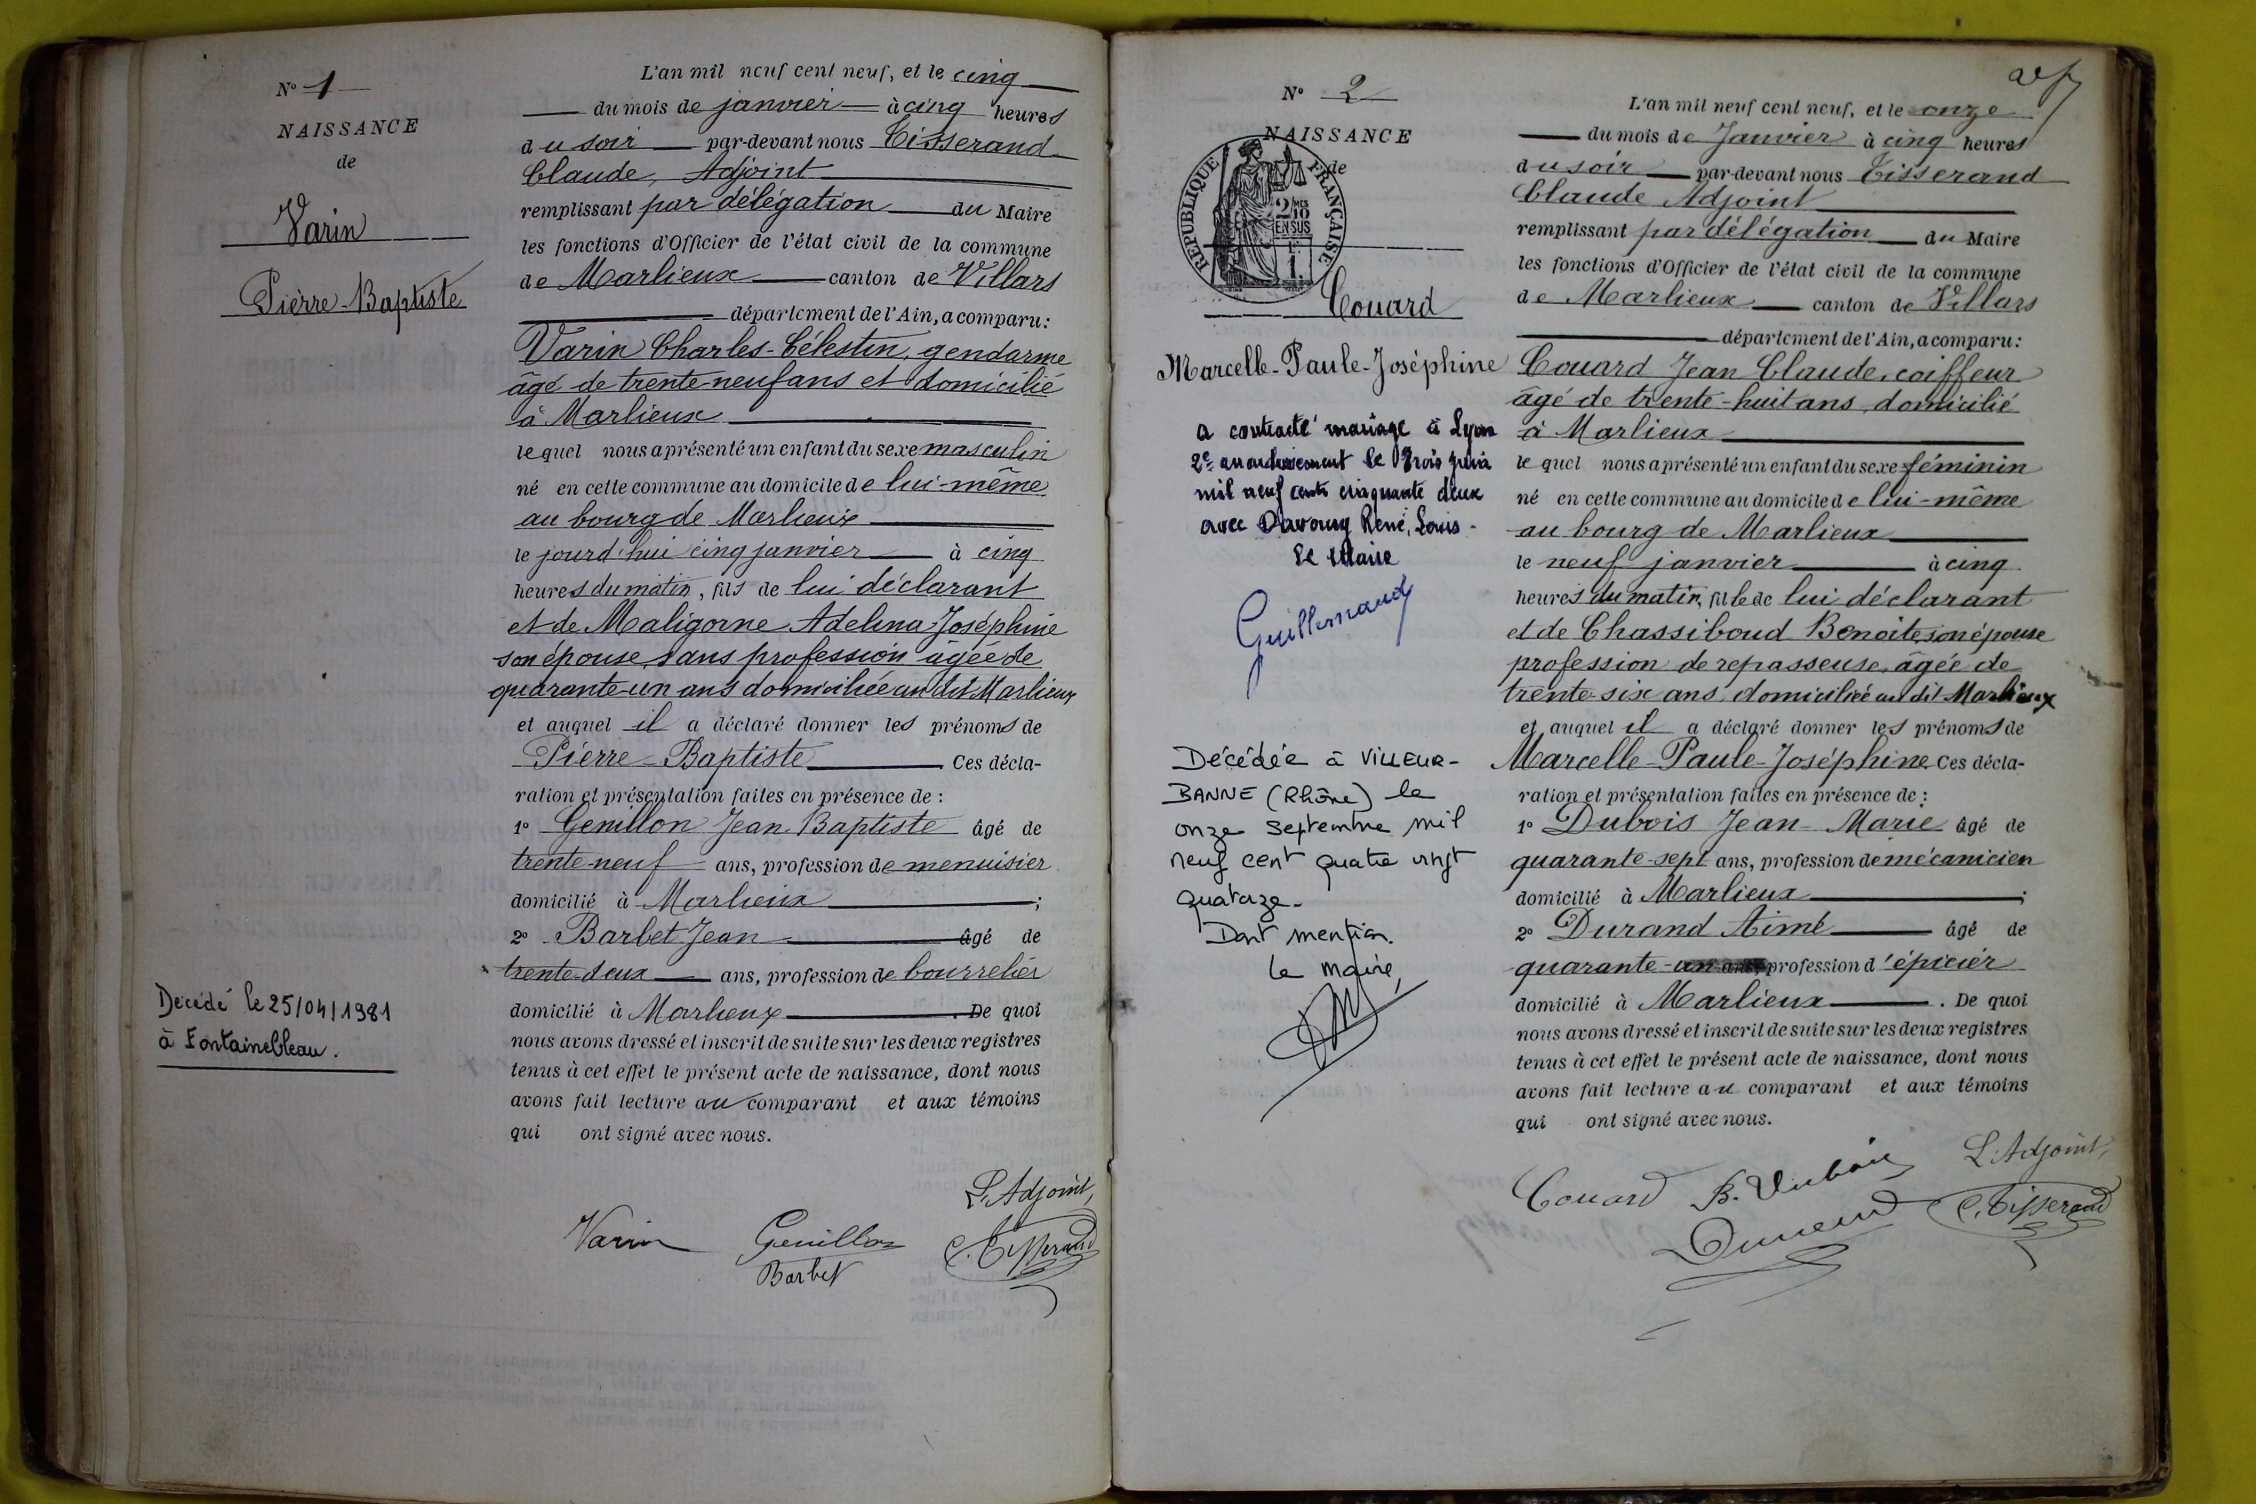 N° 1
NAISSANCE
de
Varin
Pierre-Baptiste
Décédé le 25/04/1981
à Fontainebleau.
L'an mil neuf cent neuf, et le cinq
du mois de janvier à cinq heures
du soir par-devant nous Tisserand
Claude, Adjoint
remplissant par délégation du Maire
les fonctions d'Officier de l'état civil de la commune
de Marlieux canton de Villars
département de l'Ain, a comparu:
Varin Charles-Célestin, gendarme
âgé de trente-neuf ans et domicilié
à Marlieux
lequel nous a présenté un enfant du sexe masculin
né en cette commune au domicile de lui-même
au bourg de Marlieux
le jourd'hui cinq janvier à cinq
heures du matin, fils de lui déclarant
et de Maligorne Adelina Joséphine
son épouse, sans profession âgée de
quarante-un ans domiciliée au dit Marlieux
et auquel il a déclaré donner les prénoms de
Pierre-Baptiste Ces décla-
ration et présentation faites en présence de :
1° Genillon Jean-Baptiste âgé de
trente-neuf ans, profession de menuisier
domicilié à Marlieux ;
2° Barbet Jean âgé de
trente-deux ans, profession de bourrelier
domicilié à Marlieux. De quoi
nous avons dressé et inscrit de suite sur les deux registres
tenus à cet effet le présent acte de naissance, dont nous
avons fait lecture au comparant et aux témoins
qui ont signé avec nous.
L'Adjoint,
Varin Genillon C. Tisserand
Barbet
N° 2
NAISSANCE
de
RÉPUBLIQUE FRANÇAISE
2/10 MES
EN SUS
1 F.
Couard
Marcelle-Paule-Joséphine
a contracté mariage à Lyon
2e arrondissement le trois juin
mil neuf cent cinquante deux
avec Davouay René, Louis-
Le Maire
Guillermaud
Décédée à VILLEUR-
BANNE (Rhône) le
onze septembre mil
neuf cent quatre vingt
quatorze-
Dont mention.
le maire,
L'an mil neuf cent neuf, et le onze
du mois de Janvier à cinq heures
du soir par-devant nous Tisserand
Claude Adjoint
remplissant par délégation du Maire
les fonctions d'Officier de l'état civil de la commune
de Marlieux canton de Villars
département de l'Ain, a comparu:
Couard Jean Claude, coiffeur
âgé de trente-huit ans, domicilié
à Marlieux
lequel nous a présenté un enfant du sexe féminin
né en cette commune au domicile de lui-même
au bourg de Marlieux
le neuf janvier à cinq
heures du matin, fille de lui déclarant
et de Chassiboud Benoite, son épouse
profession de repasseuse, âgée de
trente-six ans, domiciliée au dit Marlieux
et auquel il a déclaré donner les prénoms de
Marcelle-Paule-Joséphine. Ces décla-
ration et présentation faites en présence de :
1° Dubois Jean-Marie âgé de
quarante-sept ans, profession de mécanicien
domicilié à Marlieux ;
2° Durand Aimé âgé de
quarante-un ans, profession d'épicier
domicilié à Marlieux. De quoi
nous avons dressé et inscrit de suite sur les deux registres
tenus à cet effet le présent acte de naissance, dont nous
avons fait lecture au comparant et aux témoins
qui ont signé avec nous.
L'Adjoint,
Couard B. Dubois C. Tisserand
Durand